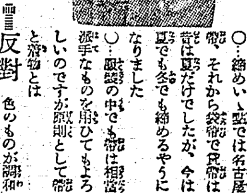 〇…締めい、點では名古屋
帶、それから袋帶で昆帶は
昔は夏だけでしたが、今は
夏でも冬でも締めるやうに
なりました
〇…服裝の中でも帶は相當
派手なものを用ひてもよろ
しいのですが原則として帶
と着物とは
反對 色のものが調和